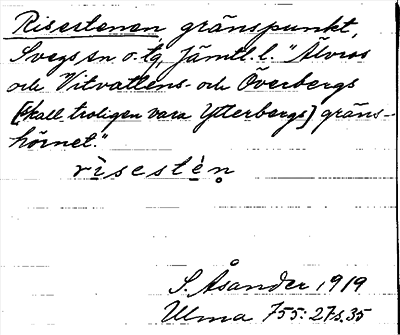 Risestenen gränspunkt,
Svegs sn o. tg, Jämtl. l. "Alvros
och Vitvattens- och Överbergs
[skall troligen vara Ytterbergs] gräns-
hörnet."
rìsestè̀n̥
S. Åsander 1919
Ulma 755:27 s. 35